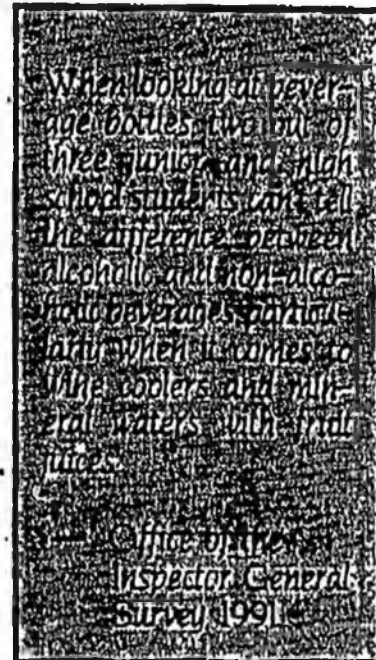 When looking at bever-
age bottles two out of
three junior and high
school students can't tell
the difference between
alcoholic and non-alco-
holic beverages particu-
larly when it comes to
wine coolers and min-
eral waters with fruit
juices.
— Office of the
Inspector General
Survey 1991